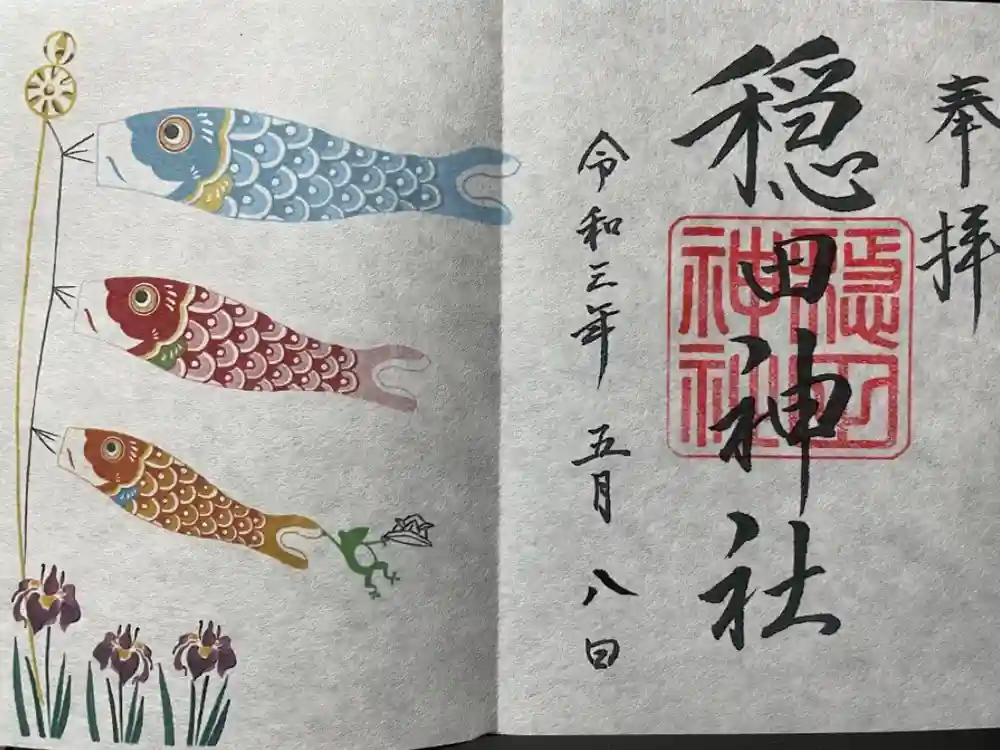 奉拝
穏田神社
穏田
神社
令和三年 五月 八日